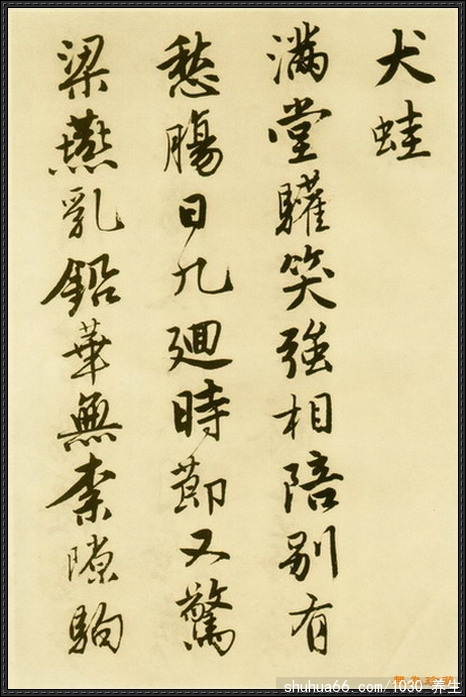 犬蛙
满堂驩笑強相陪別有
愁腸日九廻時節又驚
梁燕乳鉛華無柰隙駒
shuhua66.com/1030-养生